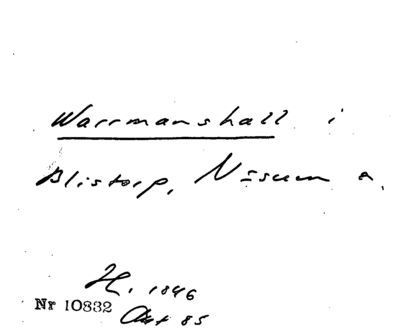 Warrmanshall i
Blistorp, Näsum a.
H. 1846
Nr 10832
Okt 85